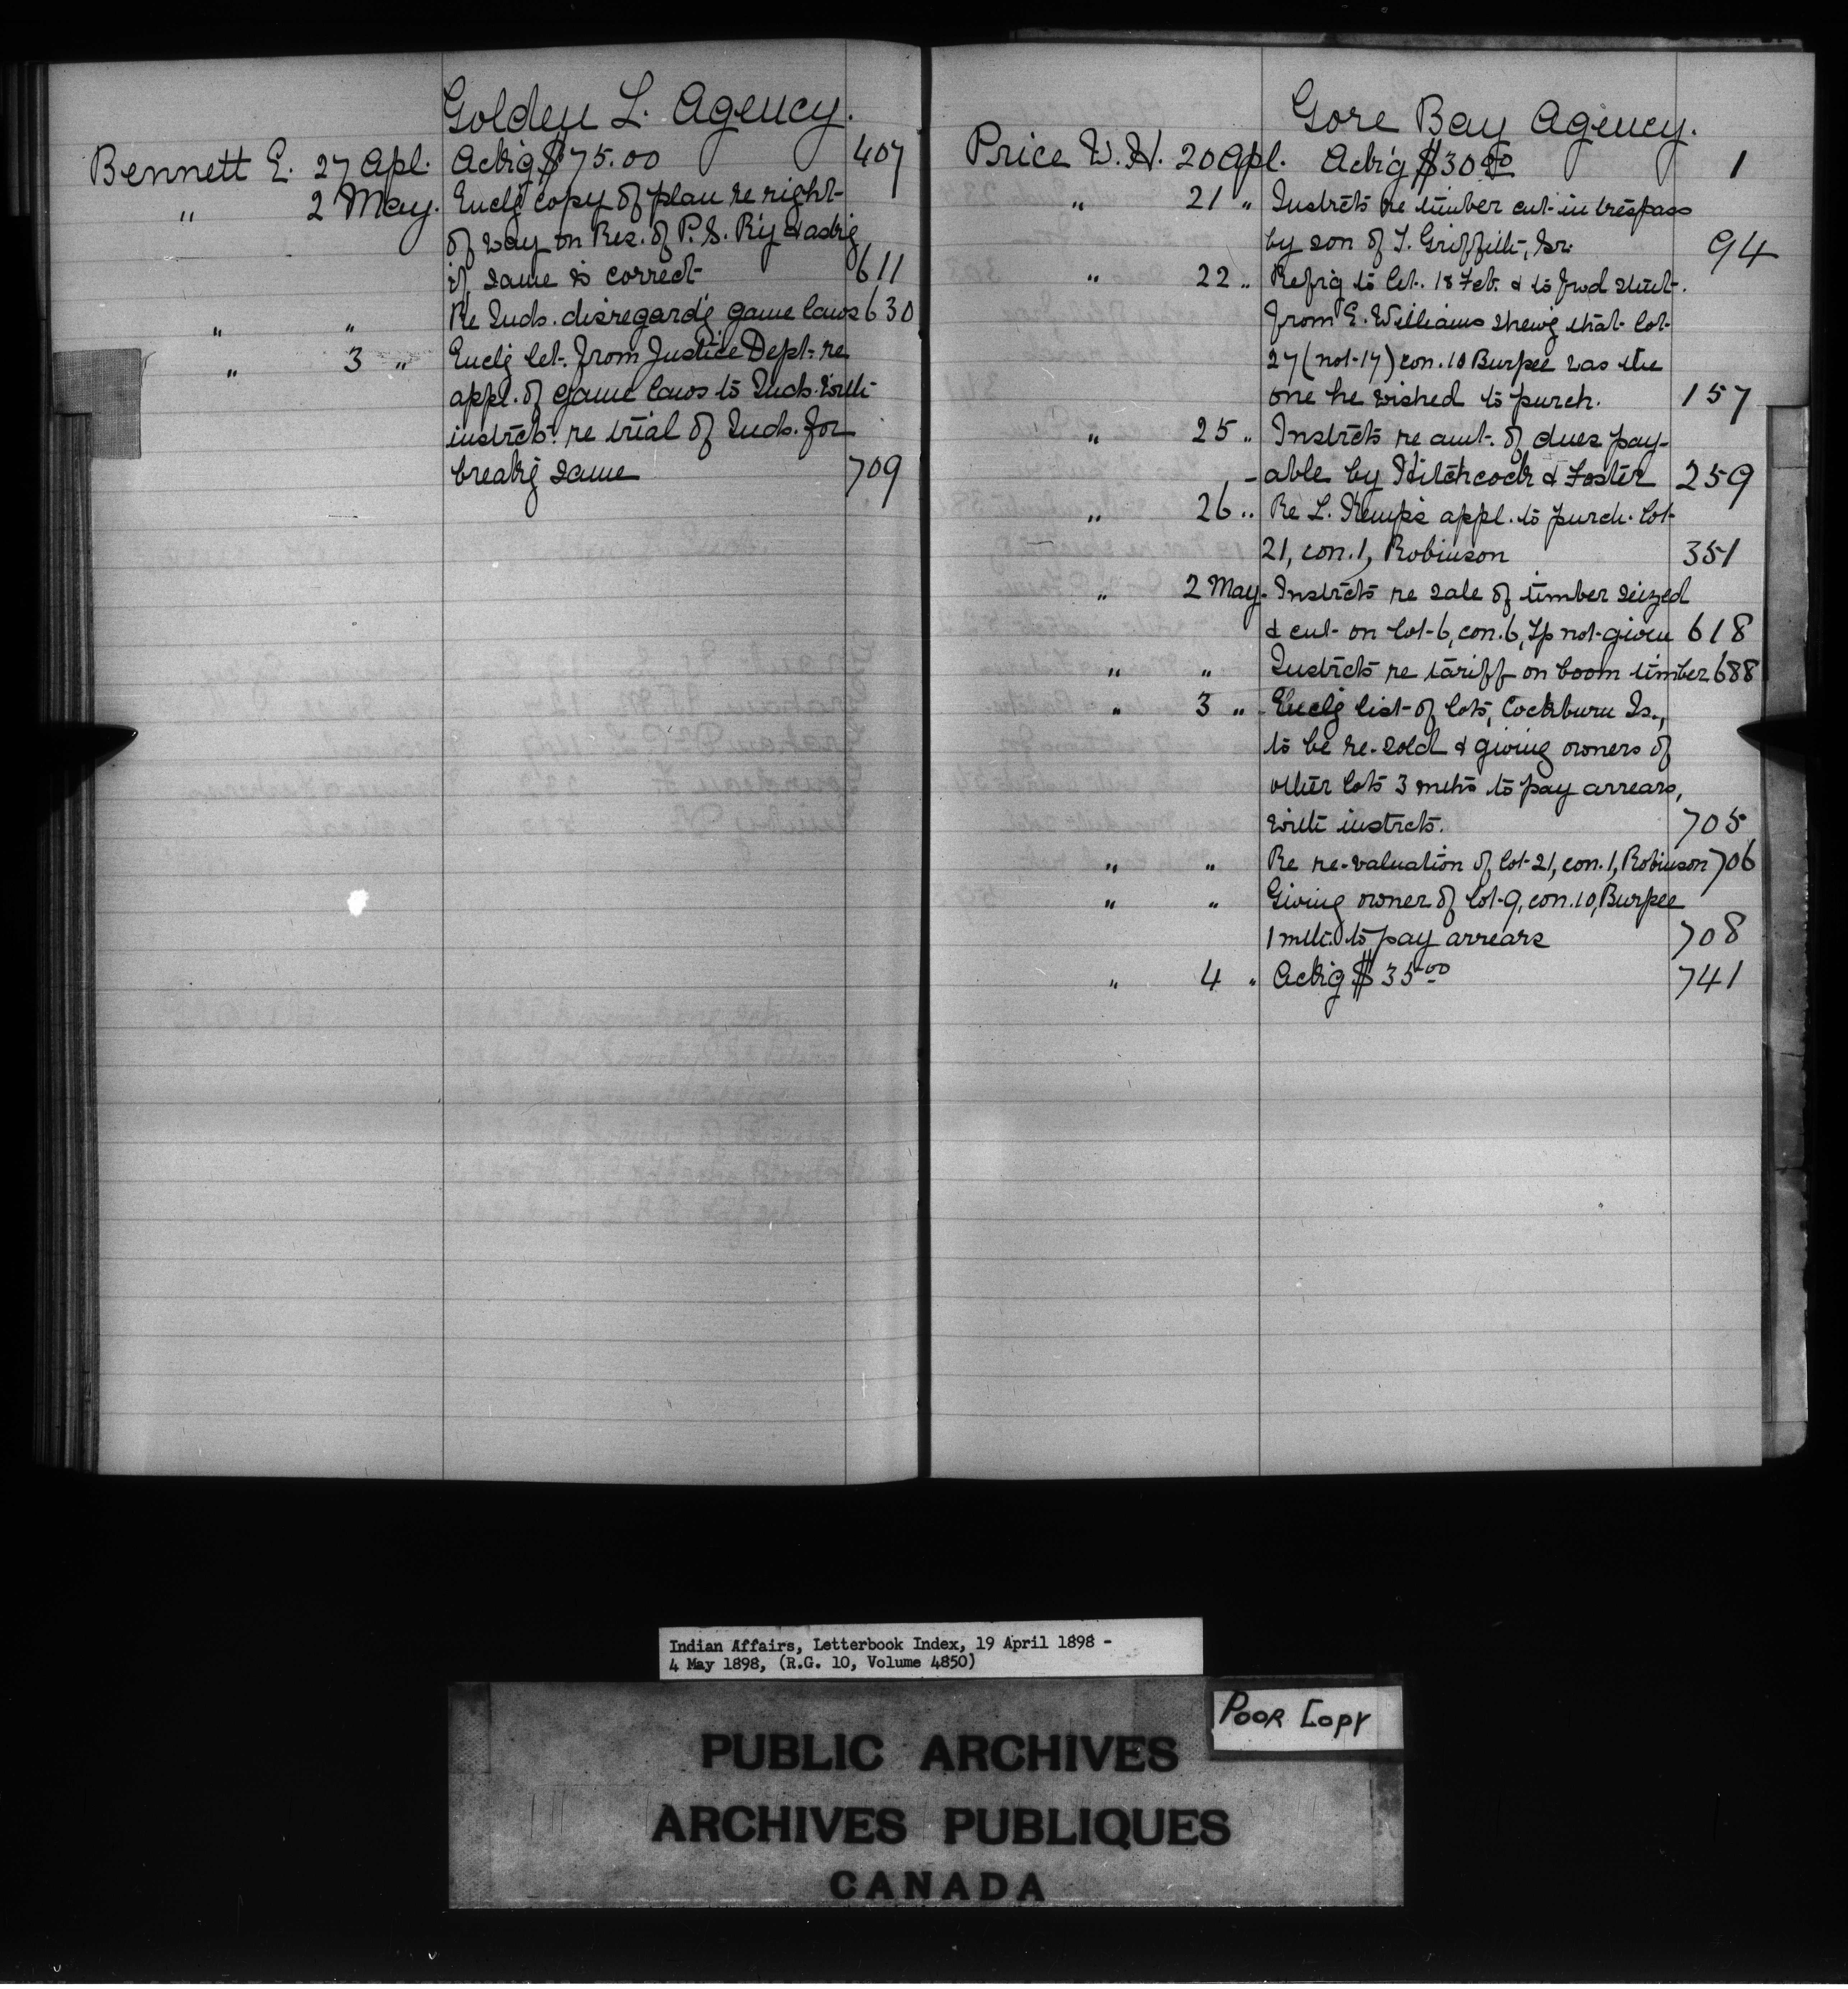 Golden L. Agency.
Bennett E. 27 Apl. Ack'g $75.00 407
" 2 May. Encl'g copy of plan re right-
of way on Res. of P.S. R'y & ask'g
if same is correct 611
" " Re Inds. disregard'g game laws 630
" 3 " Encl'g let. from Justice Dept. re
appl. of game laws to Inds. with
instrcts. re trial of Inds. for
break'g same 709
Gore Bay Agency.
Price W. H. 20 Apl. Ack'g $30.00 1
" 21 " Instrcts re timber cut in trespass
by son of T. Griffith, Sr. 94
" 22 " Ref'g to let. 18 Feb. & to fwd stmt.
from E. Williams shew'g that lot
27 (not 17) con. 10 Burpee was the
one he wished to purch. 157
" 25 " Instrcts re amt. of dues pay-
-able by Hitchcock & Foster 259
" 26 " Re L. Kemp's appl. to purch. lot
21, con. 1, Robinson 351
" 2 May. Instrcts re sale of timber seized
& cut on lot 6, con. 6, Tp not given 618
" " Instrcts re tariff on boom timber 688
" 3 " Encl'g list of lots, Cockburn Is.,
to be re-sold & giving owners of
other lots 3 mths to pay arrears,
with instrcts. 705
" " Re re-valuation of lot 21, con. 1, Robinson 706
" " Giving owner of lot 9, con. 10, Burpee
1 mth. to pay arrears 708
" 4 " Ack'g $35.00 741
Indian Affairs, Letterbook Index, 19 April 1898 -
4 May 1898, (R.G. 10, Volume 4850)
Poor Copy
PUBLIC ARCHIVES
ARCHIVES PUBLIQUES
CANADA